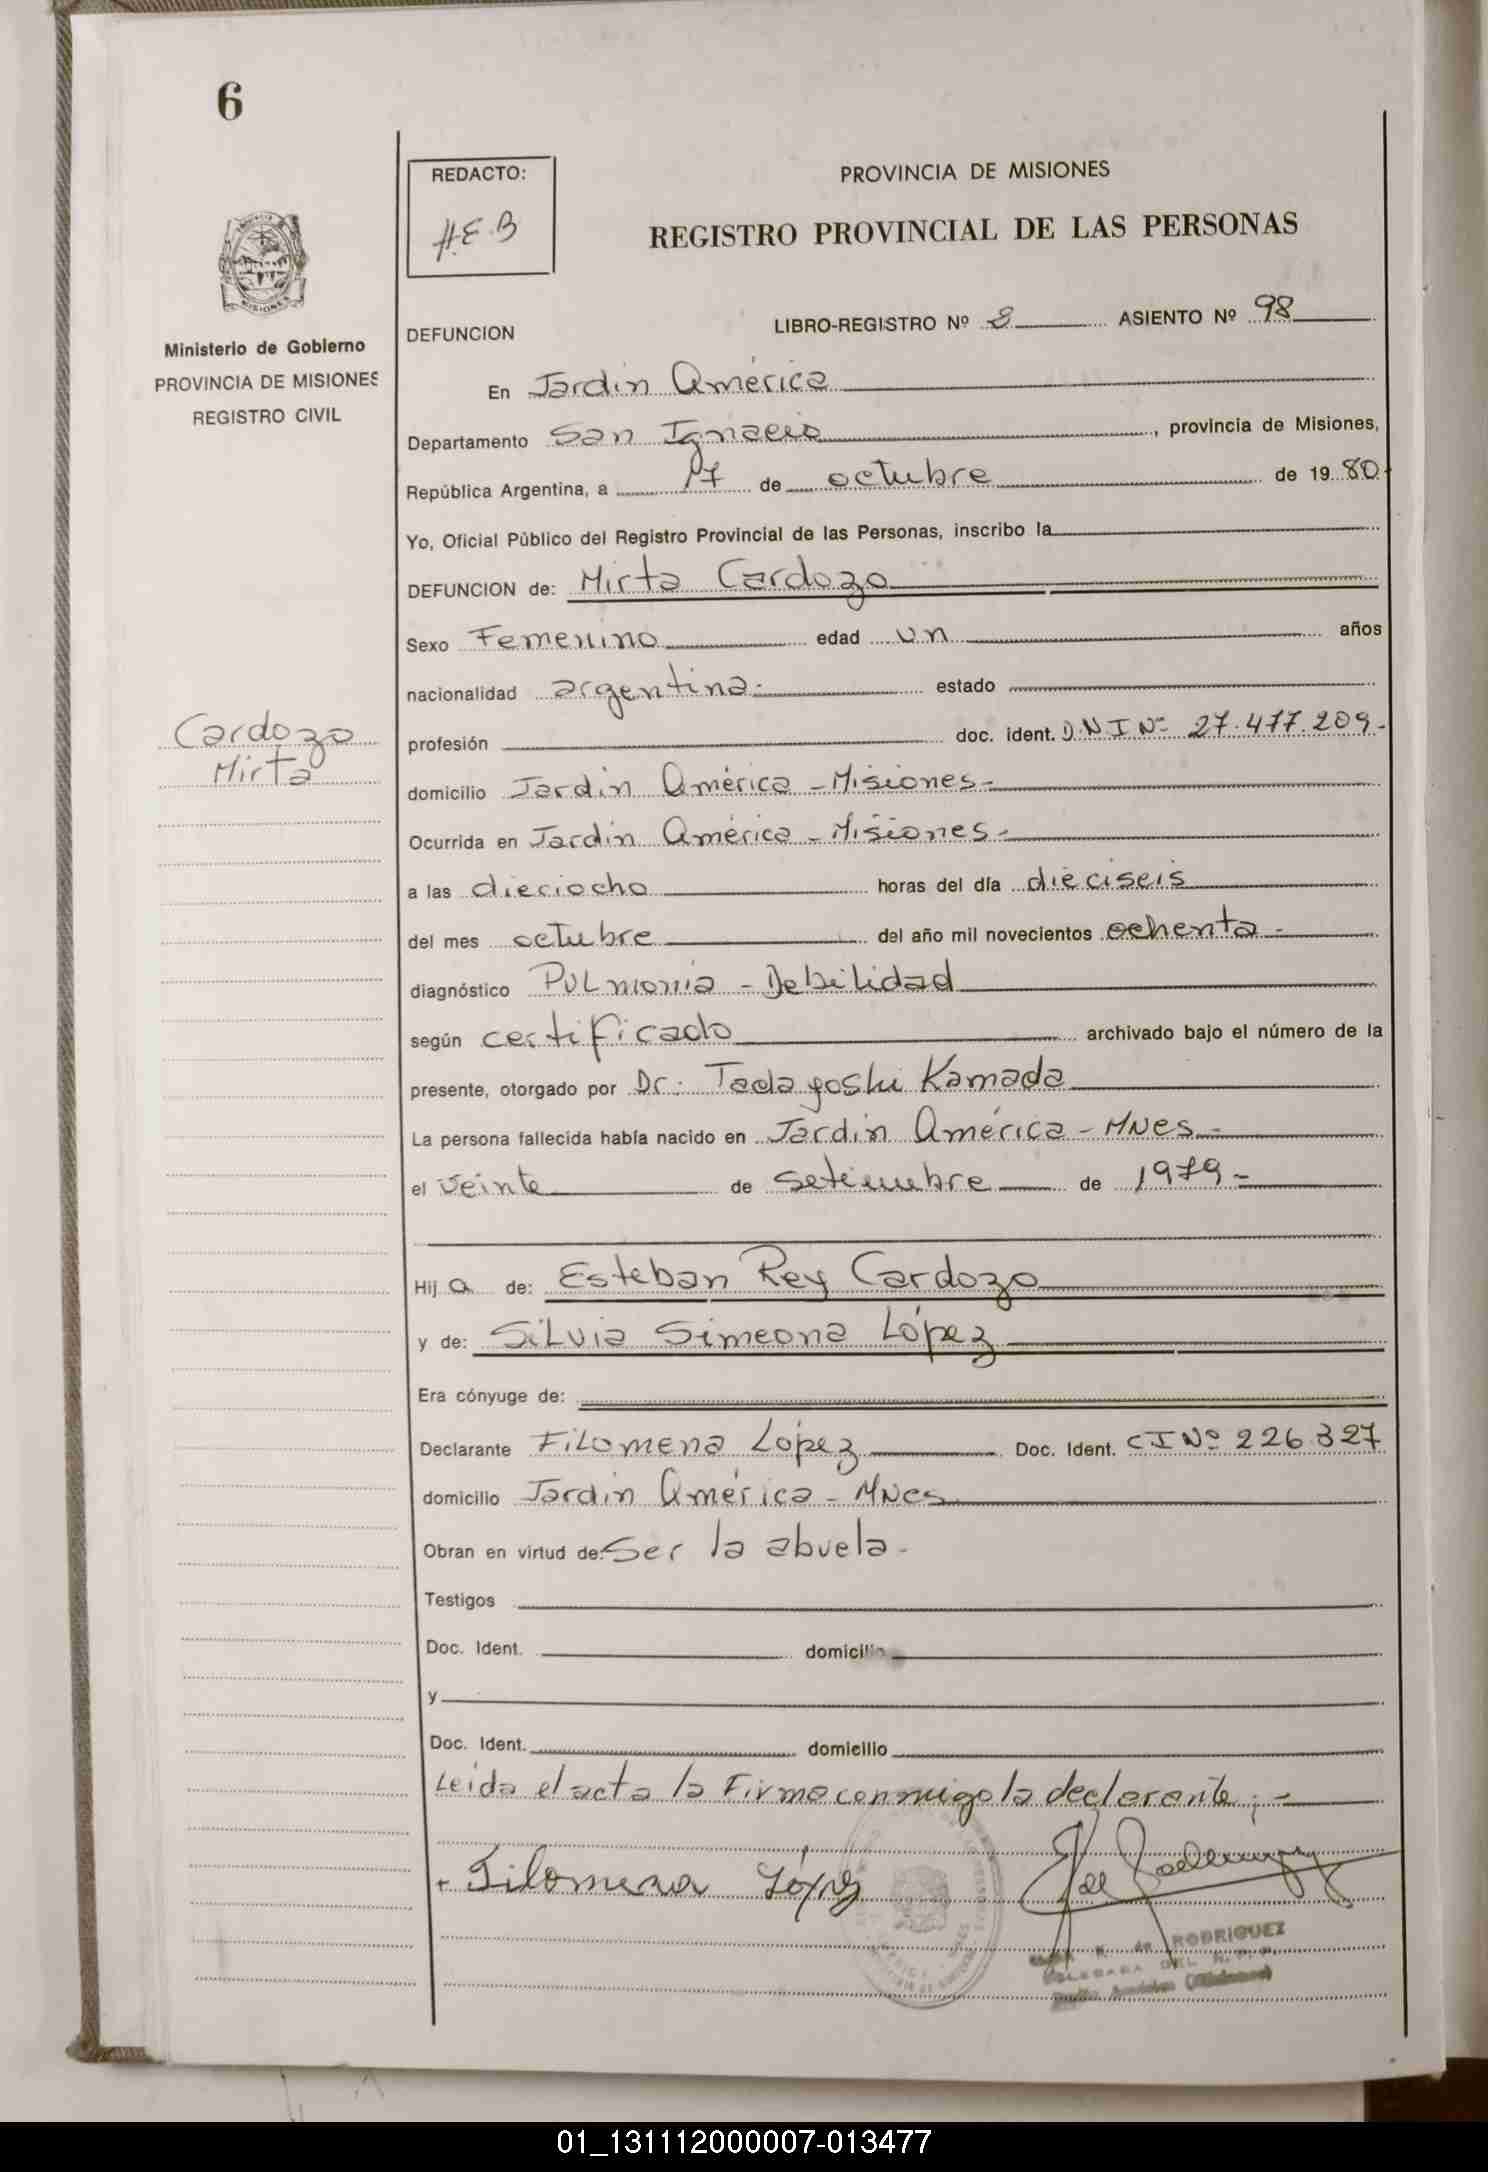 6
REDACTO:
H.E.B
PROVINCIA DE MISIONES
REGISTRO PROVINCIAL DE LAS PERSONAS
MISIONES
Ministerio de Gobierno
PROVINCIA DE MISIONES
REGISTRO CIVIL
DEFUNCION
LIBRO-REGISTRO Nº 8 ASIENTO Nº 98
En Jardin América
Departamento San Ignacio, provincia de Misiones,
República Argentina, a 17 de octubre de 1980
Yo, Oficial Público del Registro Provincial de las Personas, inscribo la
DEFUNCION de: Mirta Cardozo
Sexo Femenino edad un años
nacionalidad argentina. estado
Cardozo
Mirta
profesión doc. ident. D.N.I Nº 27.477.209-
domicilio Jardin América - Misiones-
Ocurrida en Jardin América - Misiones-
a las dieciocho horas del día dieciseis
del mes octubre del año mil novecientos ochenta-
diagnóstico PULmonía - Debilidad
según certificado archivado bajo el número de la
presente, otorgado por Dr: Tadayoshi Kamada
La persona fallecida había nacido en Jardin América - MNes-
el veinte de setiembre de 1979-
Hij a de: Esteban Rey Cardozo
y de: Silvia Simeona López
Era cónyuge de:
Declarante Filomena López Doc. Ident. CI Nº 226.327
domicilio Jardin América - MNes
Obran en virtud de: Ser la abuela-
Testigos
Doc. Ident. domicilio
y
Doc. Ident. domicilio
Leída el acta la Firma conmigo la declarante;-
Filomena López
de RODRIGUEZ
DELEGADA DEL R.P.P.
01_131112000007-013477